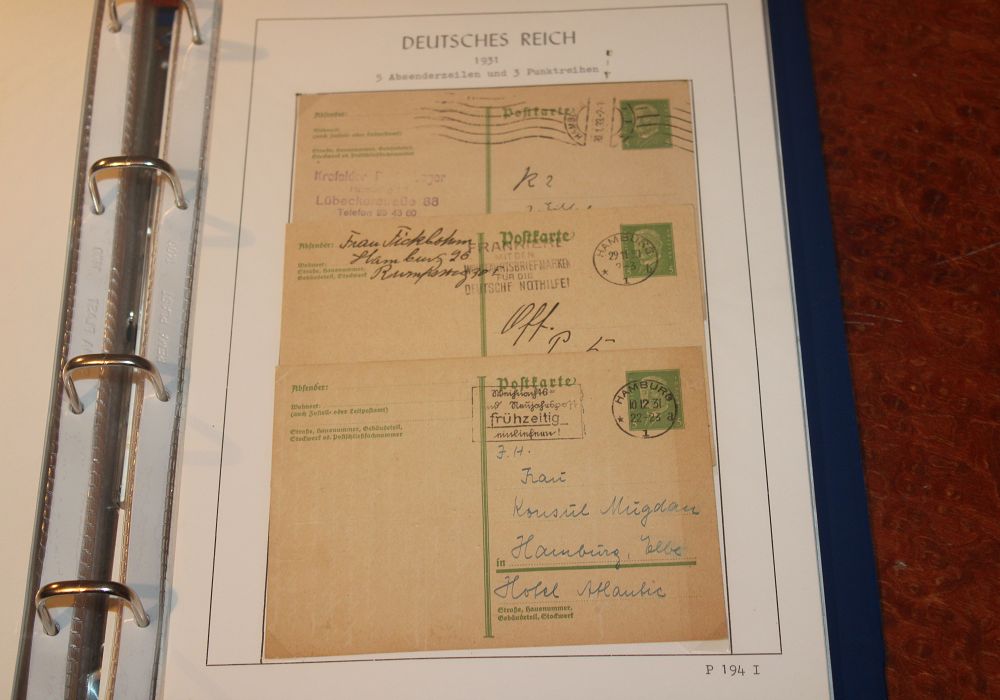 DEUTSCHES REICH
1931
5 Absenderzeilen und 3 Punktreihen
Absender:
Postkarte
Wohnort:
(auch Zustell- oder Leitpostamt)
Straße, Hausnummer, Gebäudeteil,
Stockwerk od. Postschließfachnummer
Krefelder
Lübeckerstraße 88
Telefon 25 43 60
Absender: Frau Ficklbohm
Postkarte
Hamburg 26
Wohnort:
Straße, Hausnummer,
Gebäudeteil, Stockwerk
FRANKIERE
MIT DEN
WOHLFAHRTSBRIEFMARKEN
FÜR DIE
DEUTSCHE NOTHILFE!
HAMBURG
29.11.31
1
Off.
Absender:
Postkarte
Wohnort:
(auch Zustell- oder Leitpostamt)
Straße, Hausnummer, Gebäudeteil,
Stockwerk od. Postschließfachnummer
Weihnachts-
und Neujahrspost
frühzeitig
einliefern!
HAMBURG
10.12.31
22-23 a
1
J. H.
Frau
Konsul Mugdan
in Hamburg, Elbe
Hotel Atlantic
Straße, Hausnummer,
Gebäudeteil, Stockwerk
P 194 I